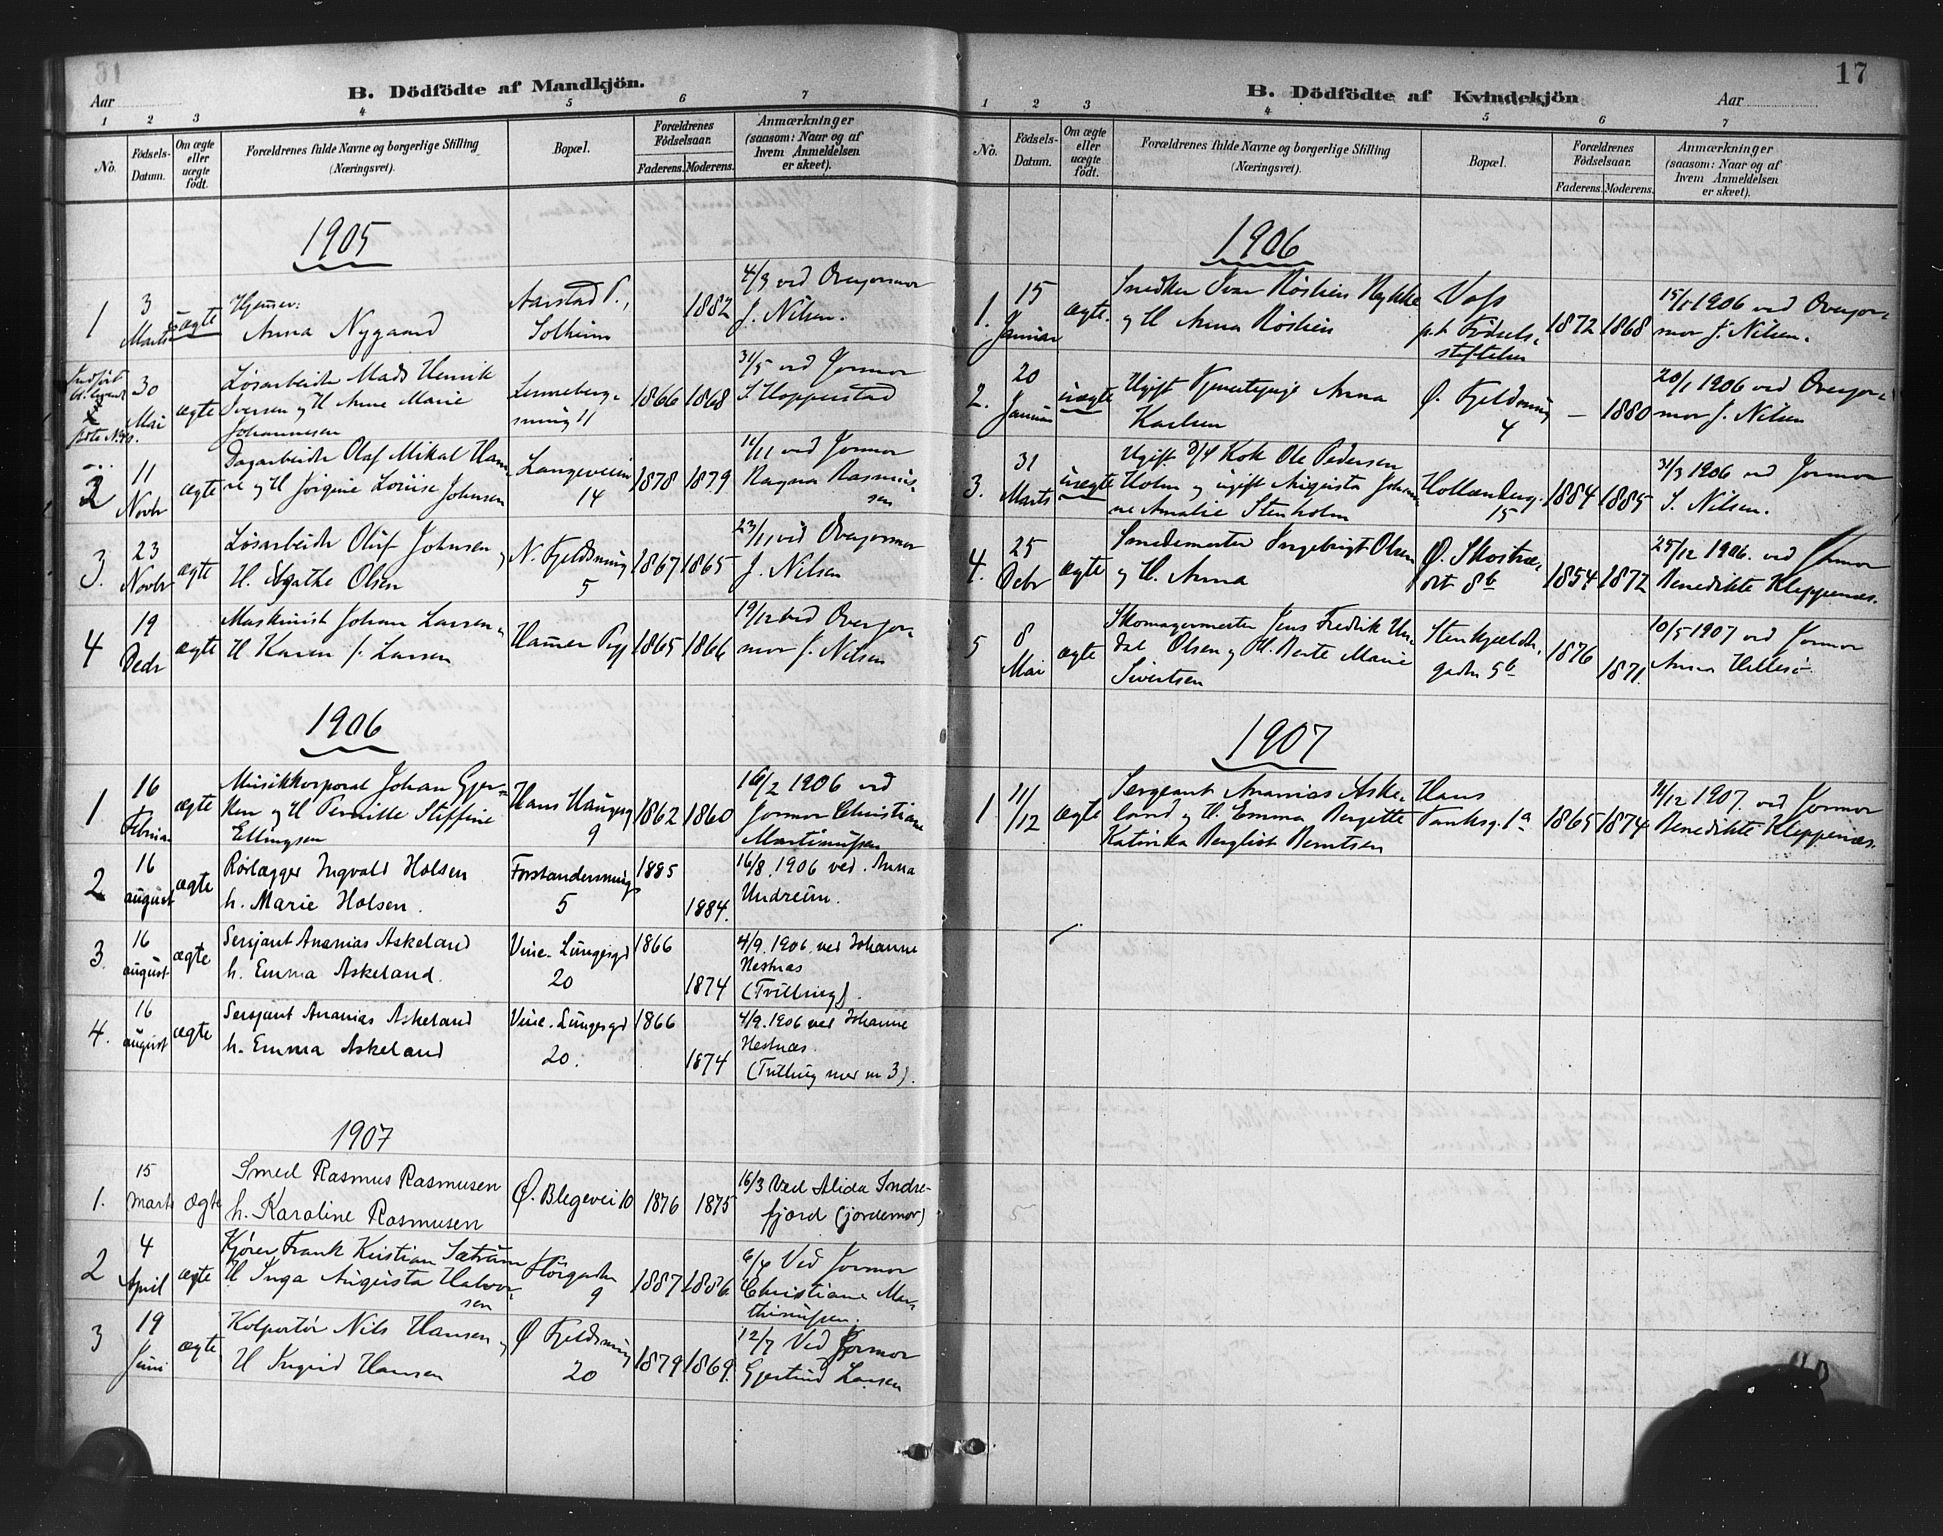 B. Dödfödte af Mandkjön.
Aar
1 2 3 4 5 6 7
No.
Födsels-
Datum.
Om ægte
eller
uægte
födt.
Forældrenes fulde Navne og borgerlige Stilling
(Næringsvei).
Bopæl.
Forældrenes
Fødselsaar.
Faderens. Moderens.
Anmærkninger
(saasom: Naar og af
hvem Anmeldelsen
er skeet).
1905
1
3
Marts
uægte
Anna Nygaard
Aarstad P.,
Solheim
1882
4/3 ved Overjormor
J. Nilsen.
30
Mai
ægte
Løsarbeider Mads Henrik
Iversen og H Anne Marie
Johannesen
smug 11
1866 1868
31/5 ved Jormor
S Hopperstad
2
11
Novbr
ægte
Dagarbeider Olaf Mikal Han-
og H Jorgine Louise Johnsen
Langeveien
14
1878 1879
11/11 ved Jormor
Ragna Rasmus-
sen
3.
23
Novbr
ægte
Løsarbeider Oluf Johnsen og
H. Agathe Olsen
N. Fjeldsmug
5
1867 1865
23/11 ved Overjormor
J. Nilsen
4
19
Decbr
ægte
Maskinist Johan Larsen og
H Karen f. Larsen
1865 1866
19/12 ved Overjor-
mor J. Nilsen
1906
1
16
Februar
ægte
Musikkorporal Johan Gjer-
og H Pernille Steffine
Ellingsen
Hans Haugesg
9
1862 1860
16/2 1906 ved
Jormor Christiane
Martinussen
2
16
august
ægte
Rørlægger Ingvald Holsen
h. Marie Holsen.
Forstandersmug
5
1885
1884.
16/8. 1906 ved. Anna
Undreim.
3.
16
august
ægte
Sersjant Ananias Askeland
h. Emma Askeland.
Vine. Lungegd
20
1866
1874
4/9. 1906. ved Johanne
Hestnæs
(Tvilling).
4.
16
august
ægte
Sersjant Ananias Askeland
h. Emma Askeland
Vine. Lungegd
20.
1866
1874
4/9. 1906 ved Johanne
Hestnæs.
(Tvilling med nr 3).
1907
1.
15
Marts
ægte
Smed Rasmus Rasmusen
h. Karoline Rasmusen
Ø. Blegevei 10
1876 1875
16/3 Ved Alida Indre-
fjord (jordemor)
2
4
April
ægte
Kjører Frank Kristian Sætrum
H Inga Augusta Halvor-
sen
9
1887 1886
6/4 Ved Jormor
Christiane Mar-
thinussen.
3
19
Juni
ægte
Kolportør Nils Hansen og
H Ingrid Hansen
Ø Fjeldsmug
20
1879 1869.
12/7 Ved Jormor
Gjertrud Larsen
17
B. Dödfödte af Kvindekjön
Aar
1 2 3 4 5 6 7
No.
Födsels-
Datum.
Om ægte
eller
uægte
födt.
Forældrenes fulde Navne og borgerlige Stilling
(Næringsvei).
Bopæl.
Forældrenes
Fødselsaar.
Faderens. Moderens.
Anmærkninger
(saasom: Naar og af
hvem Anmeldelsen
er skeet).
1906
1.
15
Januar
ægte.
Snedker Ivar Røslien Nykke
og H Anna Røslien
Voss
p.t. Fødsels-
stiftelsen
1872 1868
15/1 1906 ved Overjor-
mor J. Nilsen.
2.
20
Januar
uægte
Ugift Tjenestepige Anna
Karlsen
Ø. Fjeldsmug
4
–
1880
20/1 1906 ved Overjor-
mor J. Nilsen
3.
31
Marts
uægte
Ugift Kok Ole Pedersen
Holm og ugift Augusta Johan-
ne Amalie Stenholm
Hollænderg.
15
1884 1885
31/3 1906 ved Jormor
S. Nilsen.
4.
25
Decbr
ægte
Smedemester Ingebrigt Olsen
og H. Anna
Ø. Skostræ-
det 8b
1854 1872
25/12 1906. ved Jormor
Benedikte Kleppenæs.
5
8
Mai
ægte
Skomagermester Jens Fredrik Un-
dal Olsen og H. Berte Marie
Sivertsen
Stenkjelder-
gaden 5b
1876
1871.
10/5 1907 ved Jormor
Anna Hillesø
1907
1.
11/12
ægte
Sergeant Ananias Aske-
land og H. Emma Bergitte
Katinka Bergliot Berntsen
Hans
Tanksg. 1a
1865 1874
11/12 1907. ved Jormor
Benedikte Kleppenæs.